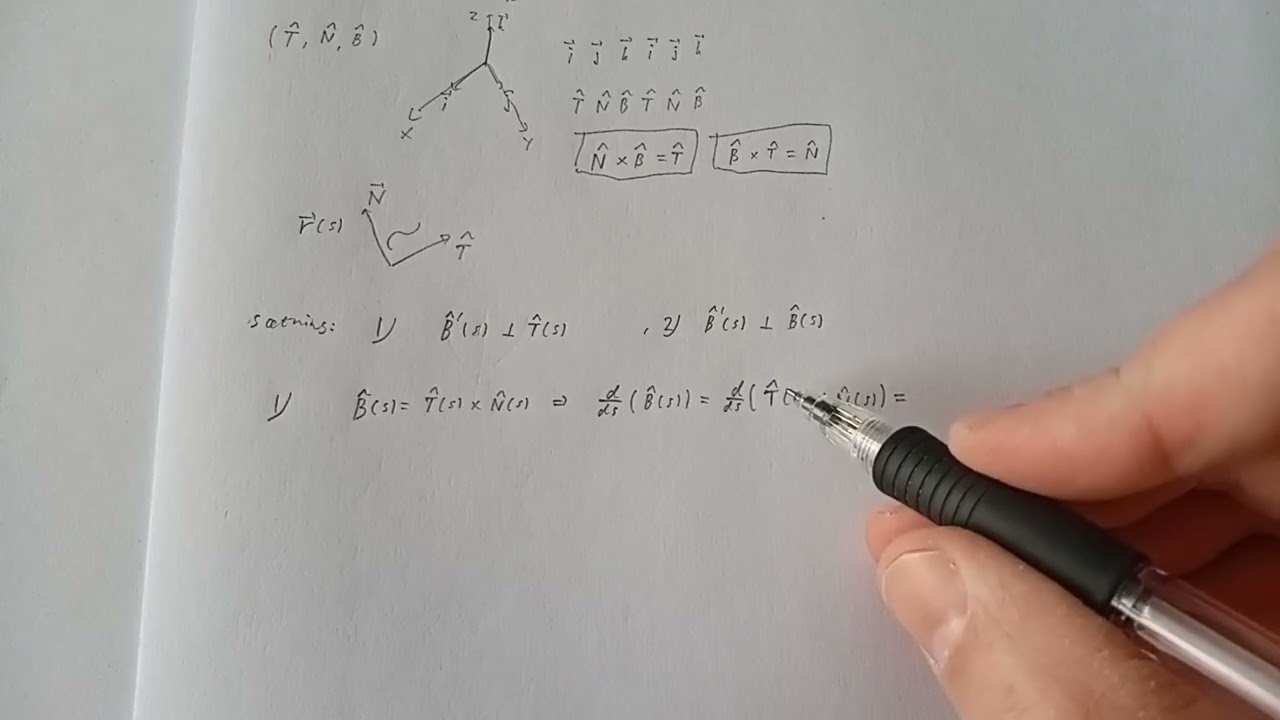 (T̂, N̂, B̂)
z k⃗
i⃗ j⃗ k⃗ i⃗ j⃗ k⃗
i⃗ j⃗
x y
T̂ N̂ B̂ T̂ N̂ B̂
N̂ × B̂ = T̂ B̂ × T̂ = N̂
r⃗(s) N⃗ T̂
Sætning: 1) B̂'(s) ⊥ T̂(s) , 2) B̂'(s) ⊥ B̂(s)
1) B̂(s) = T̂(s) × N̂(s) ⇒ d/ds (B̂(s)) = d/ds (T̂( N̂(s)) =